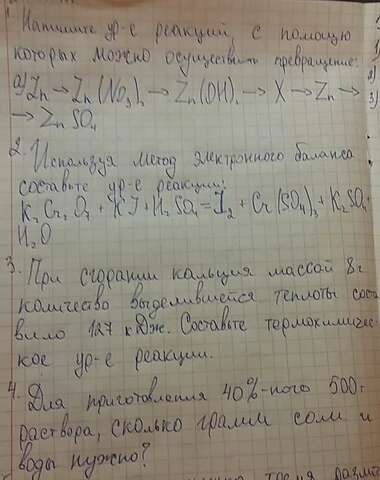 1. Напишите ур-е реакций, с помощью
которых можно осуществить превращение:
а) Zn → Zn(No₃)₂ → Zn(OH)₂ → X → Zn →
→ ZnSO₄
2. Используя метод электронного баланса
составьте ур-е реакции:
K₂Cr₂O₇ + KJ + H₂SO₄ = I₂ + Cr(SO₄)₃ + K₂SO₄
H₂O
3. При сгорании кальция массой 8г
количество выделившейся теплоты соста
вило 127 кДж. Составьте термохимичес
кое ур-е реакции.
4. Для приготовления 40%-ного 500г
раствора, сколько грамм соли и
воды нужно?